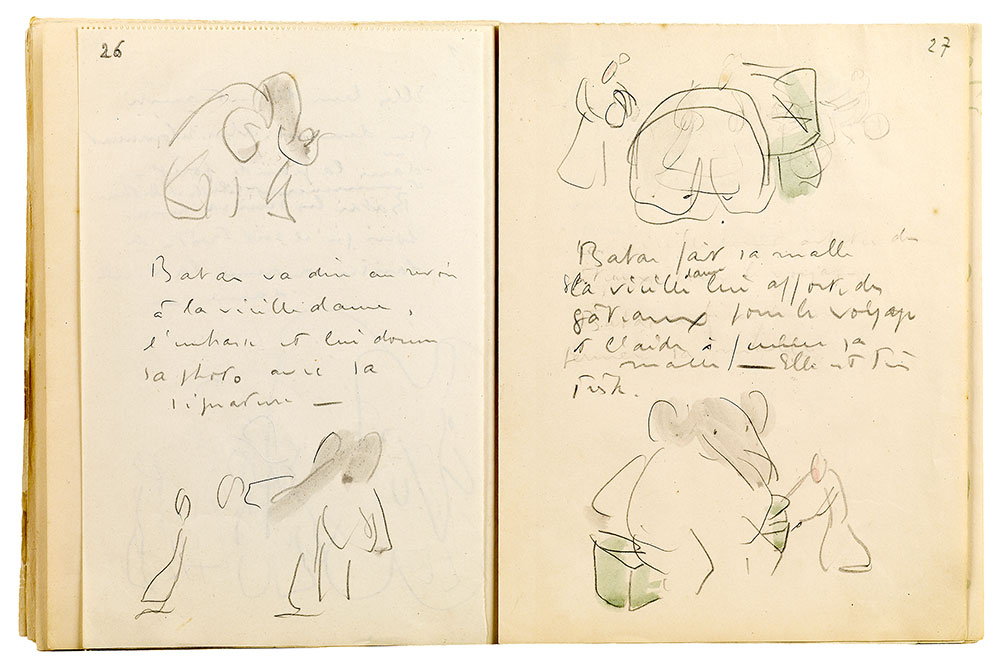 26
Babar va dire au revoir
à la vieille dame,
l'embrasse et lui donne
sa photo avec sa
signature —
27
Babar fait sa malle
la vieille dame lui apporte des
gâteaux pour le voyage
et l'aide à fermer sa
malle / — Elle est très
triste.